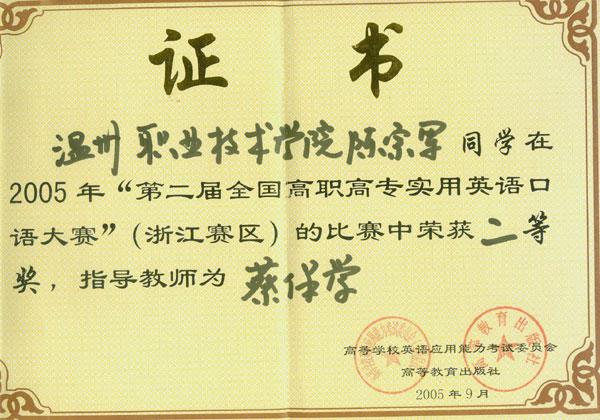 证书
温州职业技术学院陈宗军同学在
2005年“第二届全国高职高专实用英语口
语大赛”(浙江赛区)的比赛中荣获二等
奖，指导教师为蔡保学
高等学校英语应用能力考试委员会
高等教育出版社
2005年9月
高等教育出版社